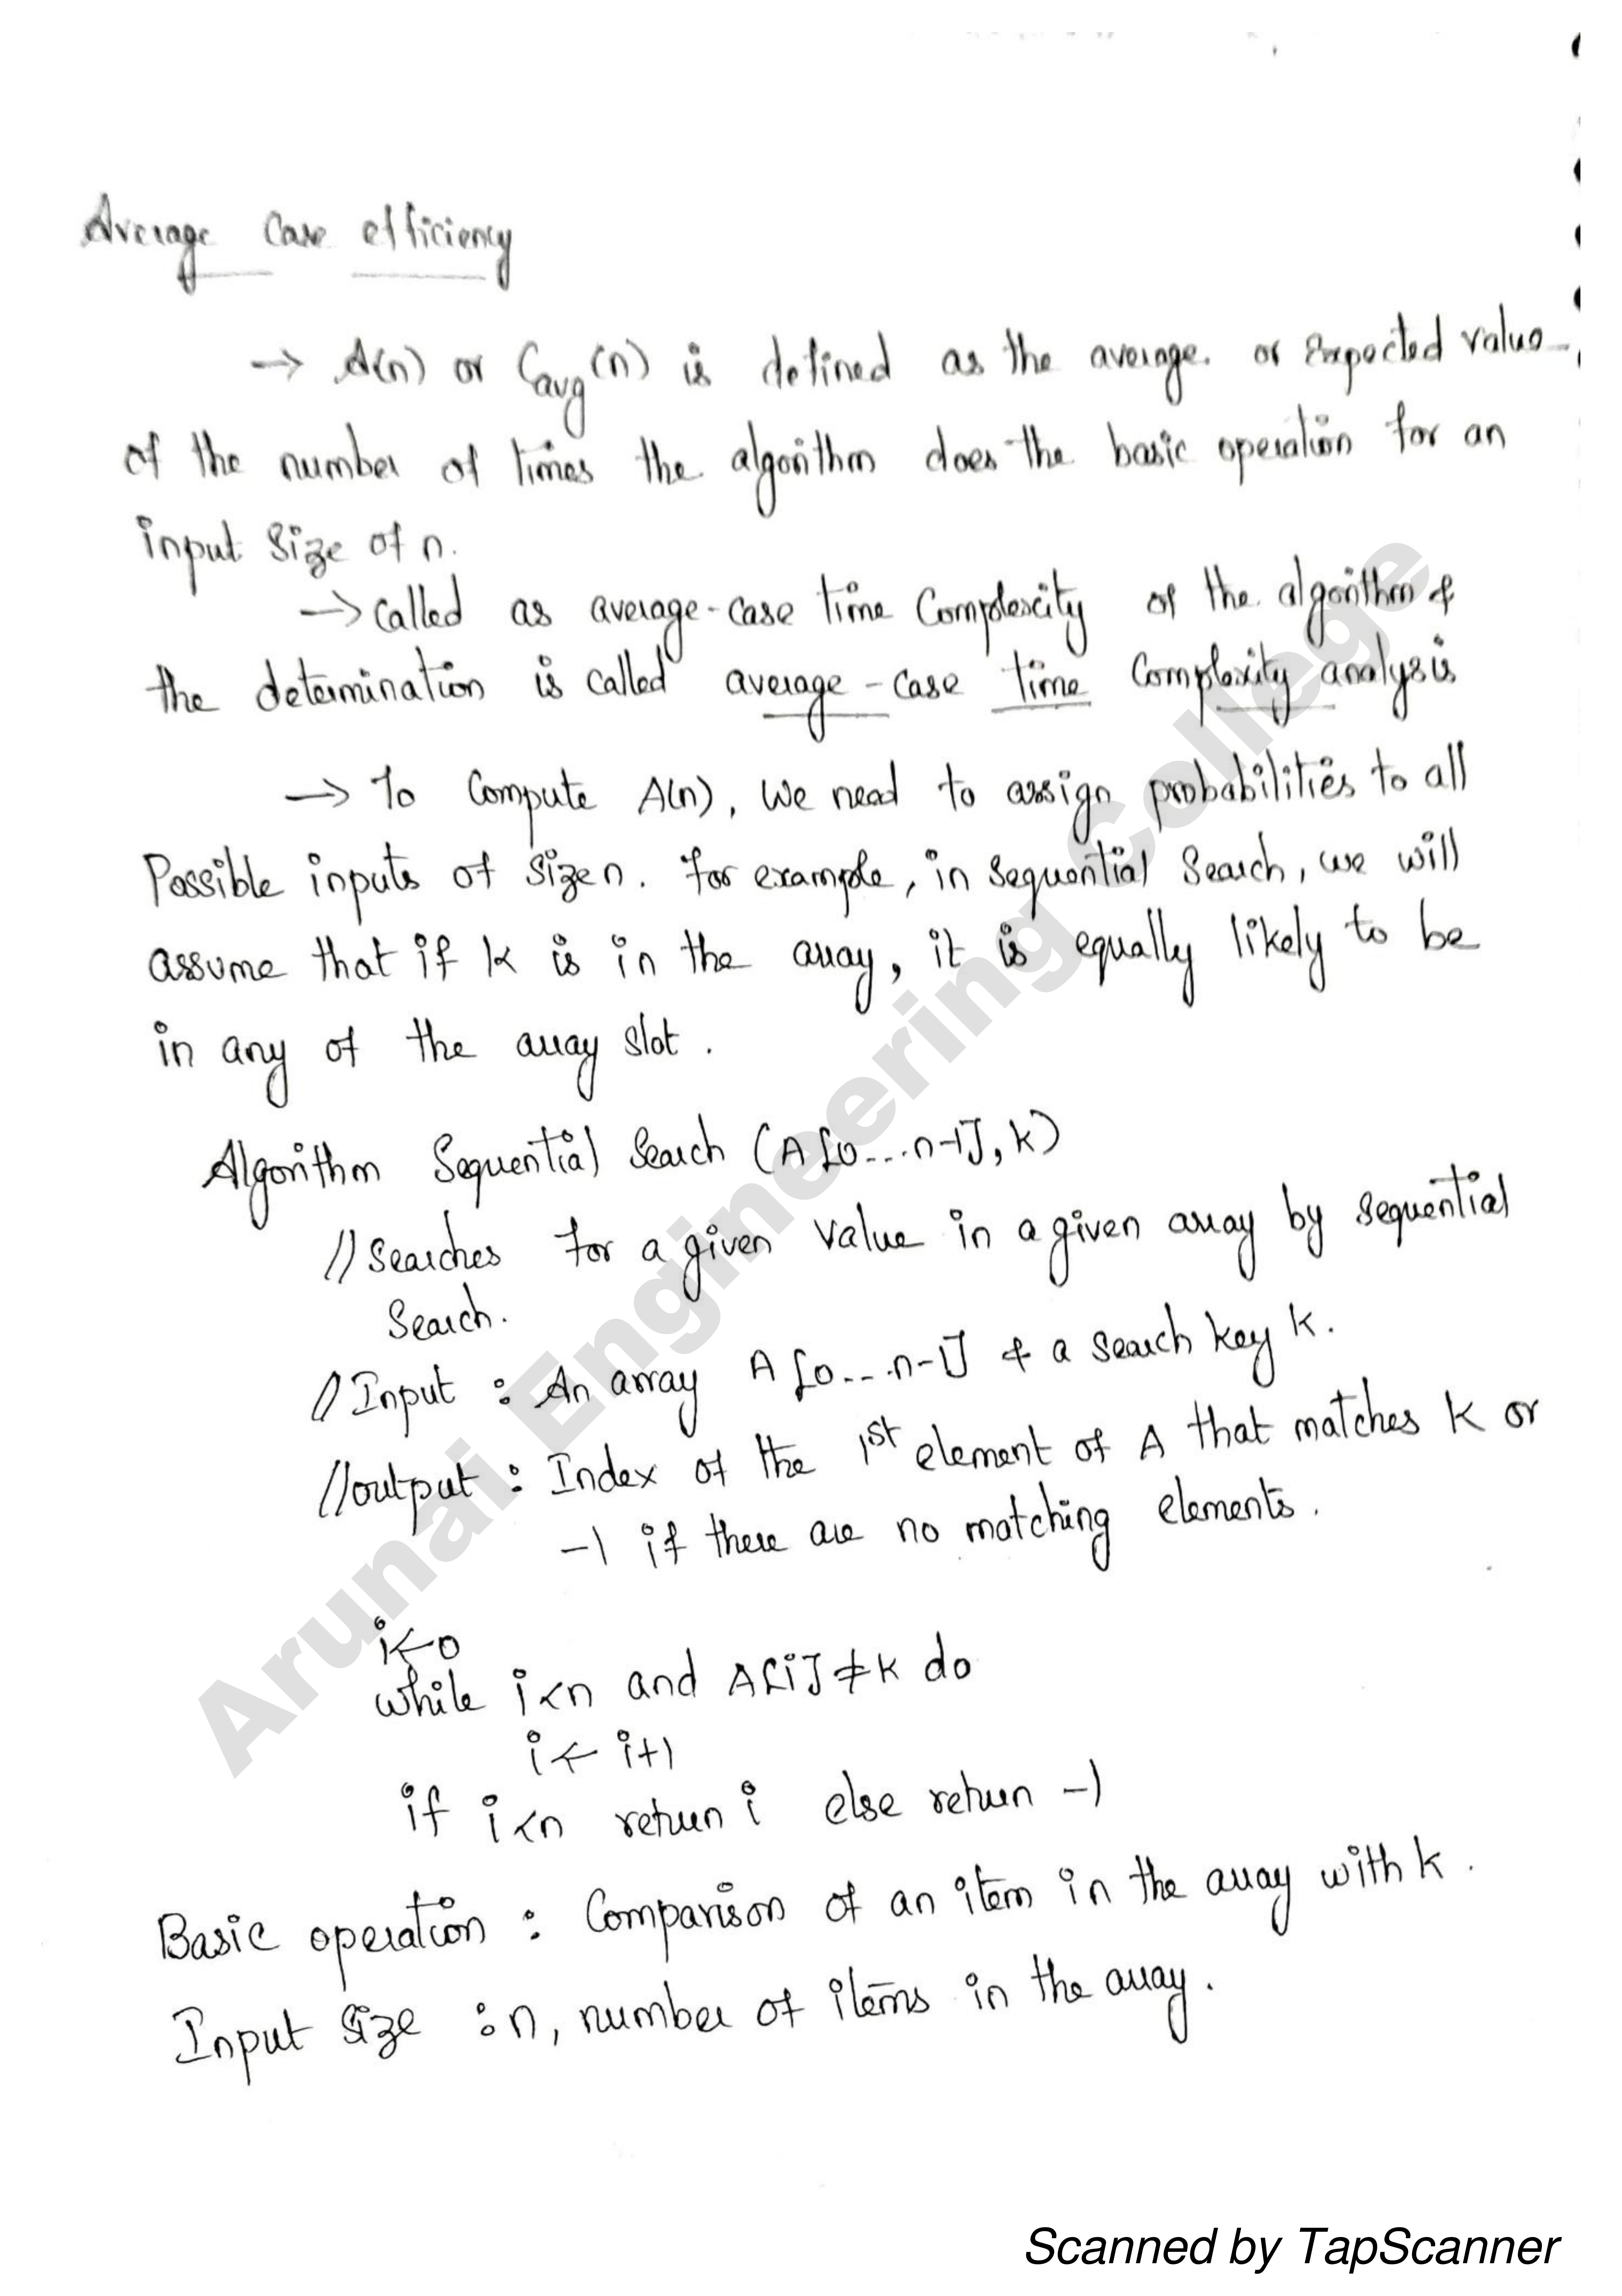 Average Case efficiency
→ A(n) or Cavg(n) is defined as the average or Expected value
of the number of times the algorithm does the basic operation for an
input size of n.
→ Called as average-case time Complexcity of the algorithm &
the determination is called average-case time Complexity analysis
→ To Compute A(n), we need to assign probabilities to all
Possible inputs of size n. for example, in sequential Search, we will
assume that if k is in the array, it is equally likely to be
in any of the array slot.
Algorithm Sequential Search (A[0...n-1], k)
// Searches for a given value in a given array by sequential
Search.
// Input : An array A[0...n-1] & a search key k.
// output : Index of the 1st element of A that matches k or
-1 if there are no matching elements.
i←0
while i<n and A[i]≠k do
i← i+1
if i<n return i else return -1
Basic operation : Comparison of an item in the array with k.
Input Size : n, number of items in the array.
Arunai Engineering College
Scanned by TapScanner